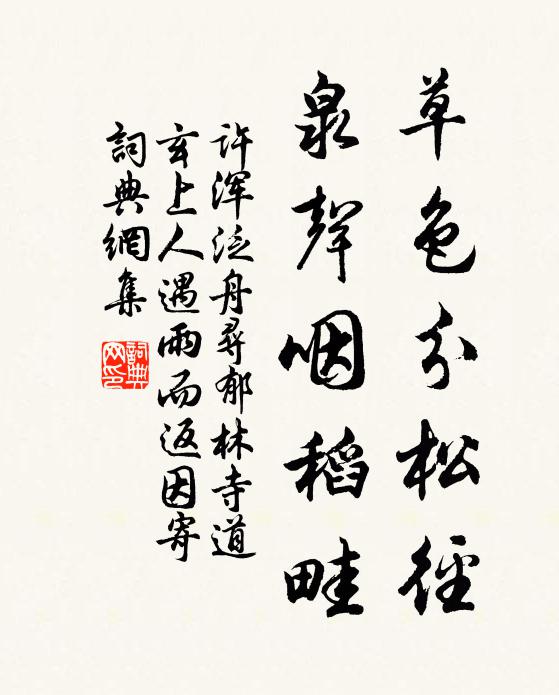 草色分松徑
泉聲咽稻畦
許渾泛舟尋郁林寺道
玄上人遇雨而返因寄
詞典網集
詞典
网印